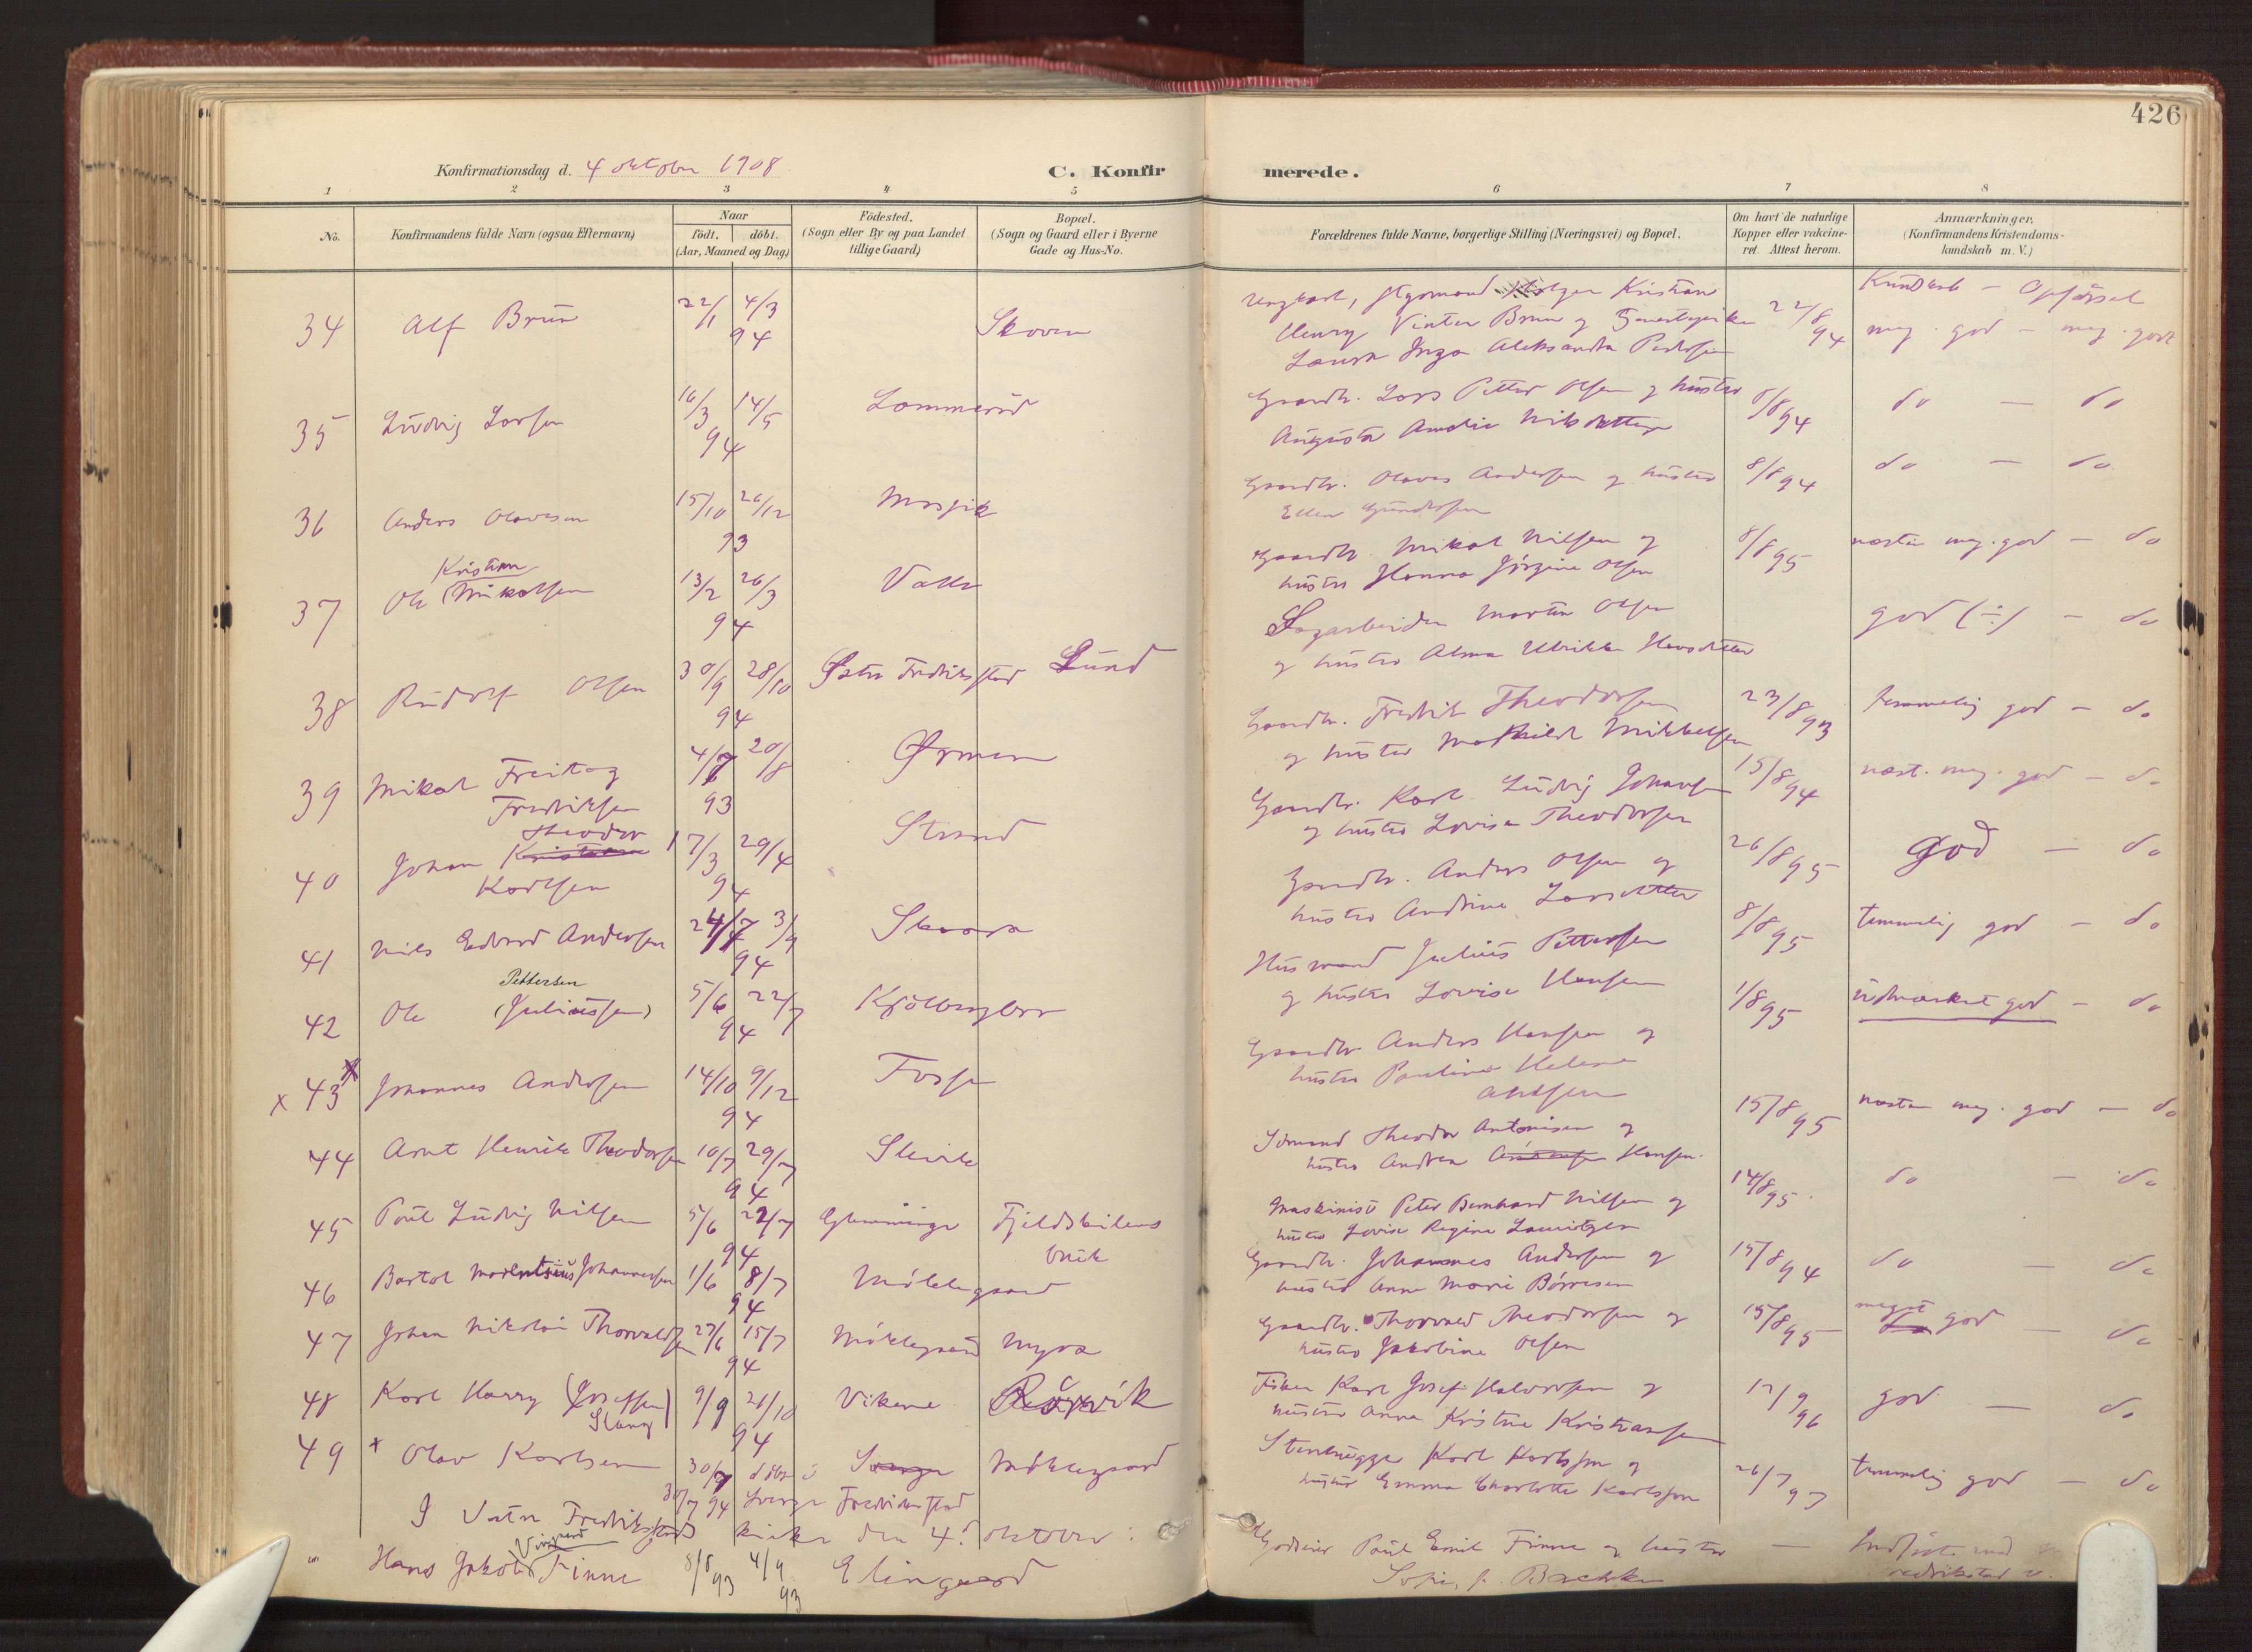 426
Konfirmationsdag d. 4 oktober 1908
C. Konfirmerede.
1 2 3 4 5 6 7 8
No.
Konfirmandens fulde Navn (ogsaa Efternavn)
Naar
födt. döbt.
(Aar, Maaned og Dag)
Födested.
(Sogn eller By og paa Landet tillige Gaard)
Bopæl.
(Sogn og Gaard eller i Byerne Gade og Hus-No.
Forældrenes fulde Navne, borgerlige Stilling (Næringsvei) og Bopæl.
Om havt de naturlige Kopper eller vakcineret. Attest herom.
Anmærkninger.
(Konfirmandens Kristendomskundskab m. V.)
Kundskab — Opførsel
34 Alf Brun 22/1 4/3 94 Skoven
Ungkarl, Kristian
Henry Vinter Brun og
Laura Inga Aleksandra 22/8 94 meg. god — meg. god
35 Ludvig Larsen 16/3 14/5 94
Gaardbr. Lars Petter Olsen og hustru
Augusta Amalie Nilsdatter 8/8 94 do — do
36 Anders Olavesen 15/10 26/12 93
Gaardbr. Olaves Andersen og hustru
Ellen Gundersen 8/8 94 do — do
37 Ole Kristian (Mikalsen 13/2 26/3 94
Gaardbr. Mikal Nilsen og
hustru Hanna Jörgine Olsen 8/8 95 næsten meg. god — do
38 Rudolf Olsen 30/9 28/10 94 Østre Fredriksstad Lund
Sagarbeider Martin Olsen
og hustru Alma Ulrikke Hansdatter god (÷) — do
39 Mikal Freitag
Fredriksen 4/7 20/8 93 Ørmen
Gaardbr. Fredrik Theodorsen
og hustru Mathilde Mikkelsen 23/8 93 temmelig god — do
40 Johan Kristian Theodor
Karlsen 17/3 29/4 94 Strand
Gaardbr. Karl Ludvig Johansen
og hustru Lovise Theodorsen 15/8 94 næst. meg. god — do
41 Nils Edvard Andersen 24/7 3/9 94 Skaara
Gaardbr. Anders Olsen og
hustru Andrine Larsdatter 26/8 95 god — do
42 Ole Pettersen (Juliussen) 5/6 22/7 94
Husmand Julius Pettersen
og hustru Lovise Hansen 8/8 95 temmelig god — do
x 43 Johannes Andersen 14/10 9/12 94 Fosse
Gaardbr Anders Hansen og
hustru Pauline Helene 1/8 95 udmærket god — do
44 Arnt Henrik Theodorsen 10/7 29/7 94 Slevik
Sömand Theodor Antonisen og
hustru Andrea Hansen. 15/8 95 næsten meg. god — do
45 Poul Ludvig Nilsen 5/6 22/7 94 Glemminge Fjeldskilens bruk
Maskinist Peter Bernhard Nilsen og
hustru Lovise Regine 14/8 95. do — do
46 Bartol Johannessen 1/6 8/7 94 Möklegaard
Gaardbr. Johannes Andersen og
hustru Anne Marie Börresen 15/8 94 do — do
47 Johan Nikolai Thorvaldsen 27/6 15/7 94 Möklegaard Myra
Gaardbr. Thorvald Theodorsen og
hustru Jakobine Olsen 15/8 95 meget god — do
48 Karl Harry (Josefsen) 9/9 21/10 94 Vikene Rörvik
Fisker Karl Josef Halvorsen og
hustru Anna Kristine Kristiansen 12/9 96 god — do
49 x Olav Karlsen 30/7 döbt i Sverge Möklegaard
30/7 94 Sverge Fredrikstad
Stenhugger Karl Karlsson og
hustru Emma Charlotte Karlsson 26/7 97 temmelig god — do
I Vestre Fredriksstads kirke den 4. oktober:
" Hans Jakob Finne 8/8 93 4/9 93 Elingaard
Godseier Poul Emil Finne og hustru
Sofie, f. —